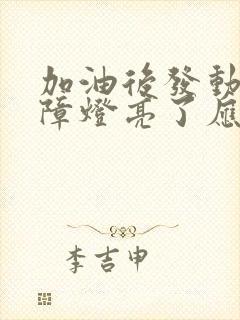 加油後發動
障燈亮了應
李吉申